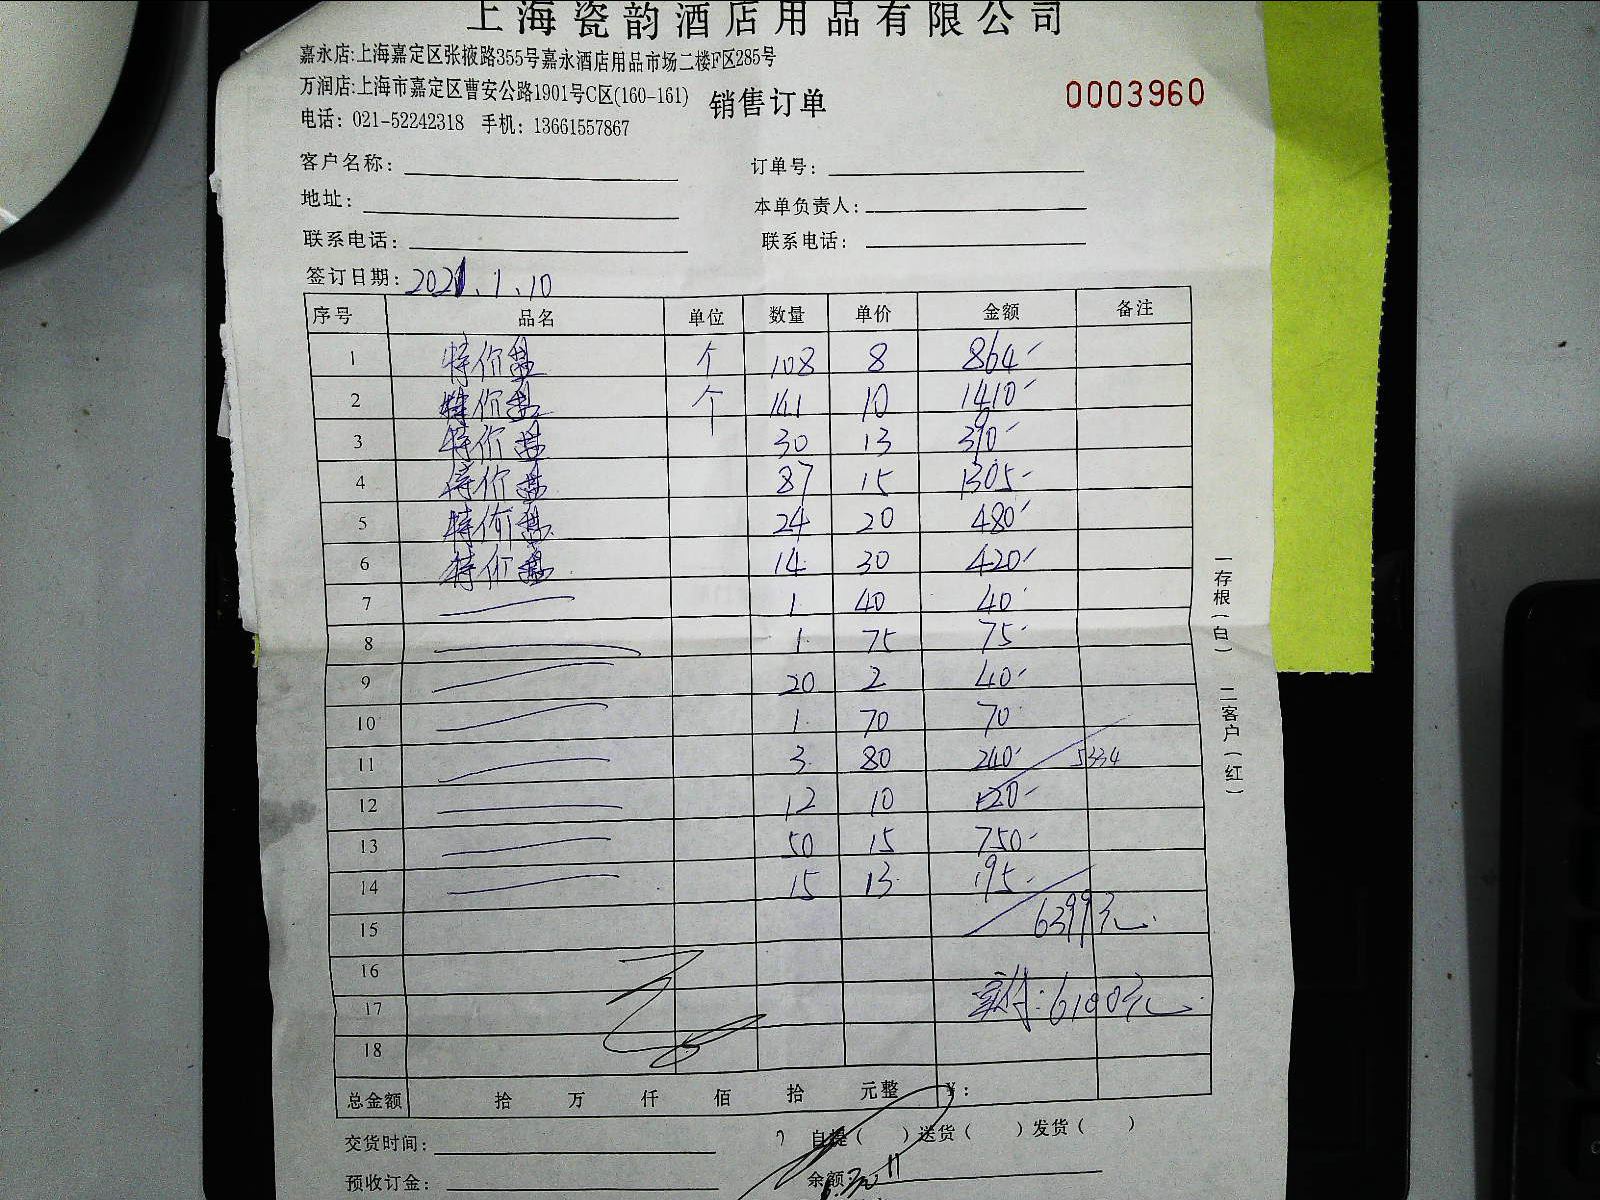 上海瓷韵酒店用品有限公司
嘉永店:上海嘉定区张掖路355号嘉永酒店用品市场二楼F区285号
万润店:上海市嘉定区曹安公路1901号C区(160-161) 销售订单 0003960
电话: 021-52242318 手机: 13661557867
客户名称: 订单号:
地址: 本单负责人:
联系电话: 联系电话:
签订日期: 2021.1.10
序号 品名 单位 数量 单价 金额 备注
1 特价盘 个 108 8 864
2 特价盘 个 141 10 1410
3 特价盘 30 13 390
4 特价盘 87 15 1305
5 特价盘 24 20 480
6 特价盘 14 30 420
7 1 40 40
8 1 75 75
9 20 2 40
10 1 70 70
11 3 80 240 5334
12 12 10 120
13 50 15 750
14 15 13 195
15 6399元
16
17 实付:6100元
18
总金额 拾 万 仟 佰 拾 元整 ¥:
交货时间: 自提( )送货( )发货( )
预收订金: 余额:
一存根(白) 二客户(红)